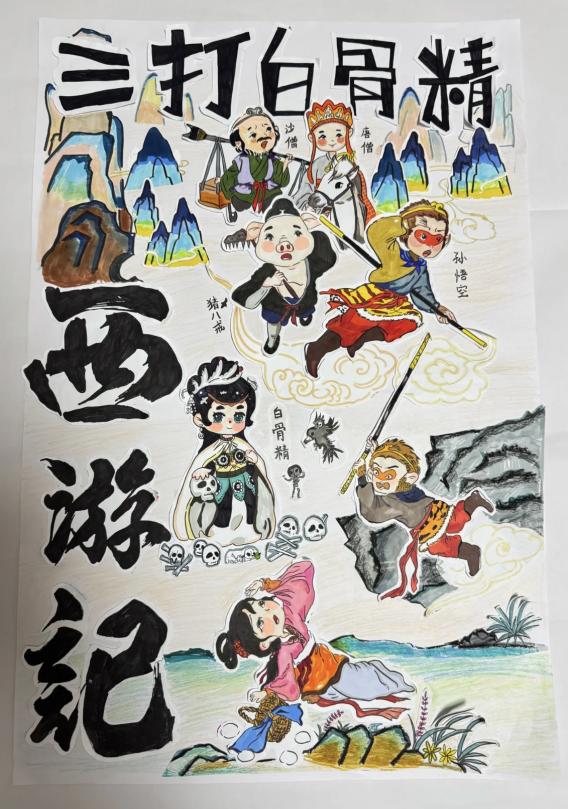 三打白骨精
沙僧
唐僧
孙悟空
猪八戒
西游记
白骨精